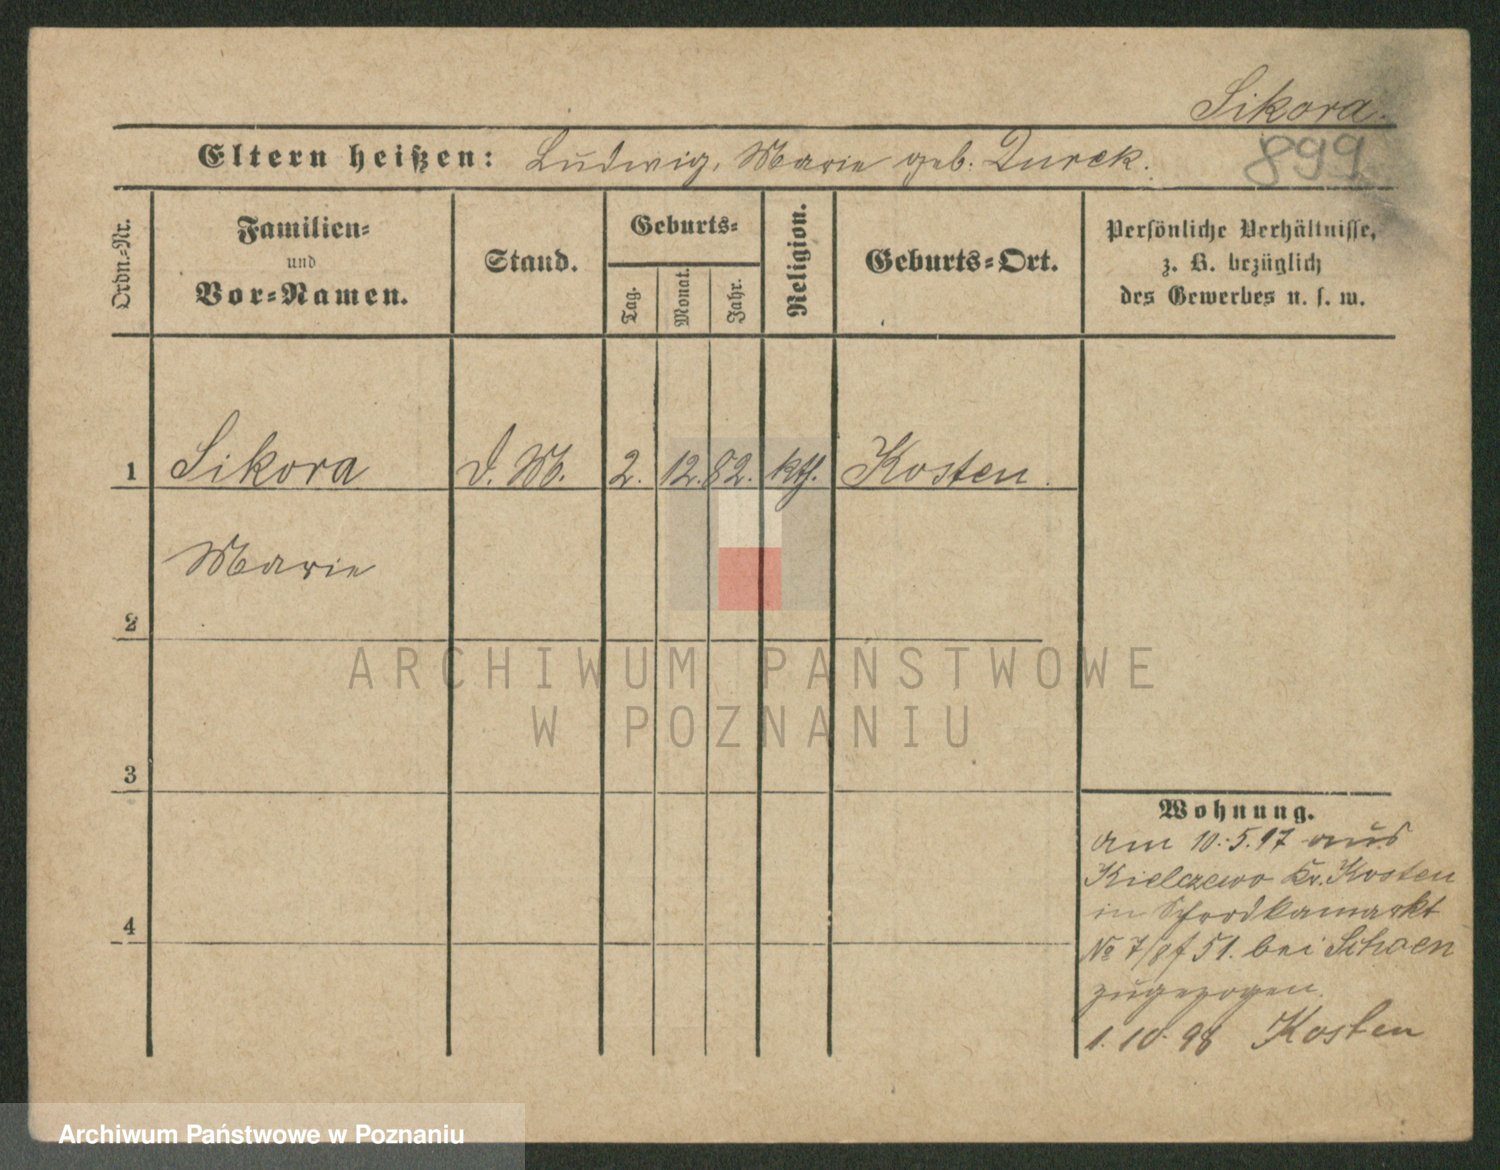 Sikora.
Eltern heißen: Ludwig, Marie geb. Durek.
899
Ordn.-Nr.
Familien-
und
Vor-Namen.
Stand.
Geburts-
Tag.
Monat.
Jahr.
Religion.
Geburts-Ort.
Persönliche Verhältnisse,
z. B. bezüglich
des Gewerbes u. s. w.
1 Sikora D. M. 2. 12. 82. kth. Kosten.
Marie
2
3
4
Wohnung.
am 10.5.97 aus
Kielczewo Kr. Kosten
in
No 7/8 51. bei Schoen
zugezogen.
1.10.98 Kosten
ARCHIWUM PAŃSTWOWE
W POZNANIU
Archiwum Państwowe w Poznaniu